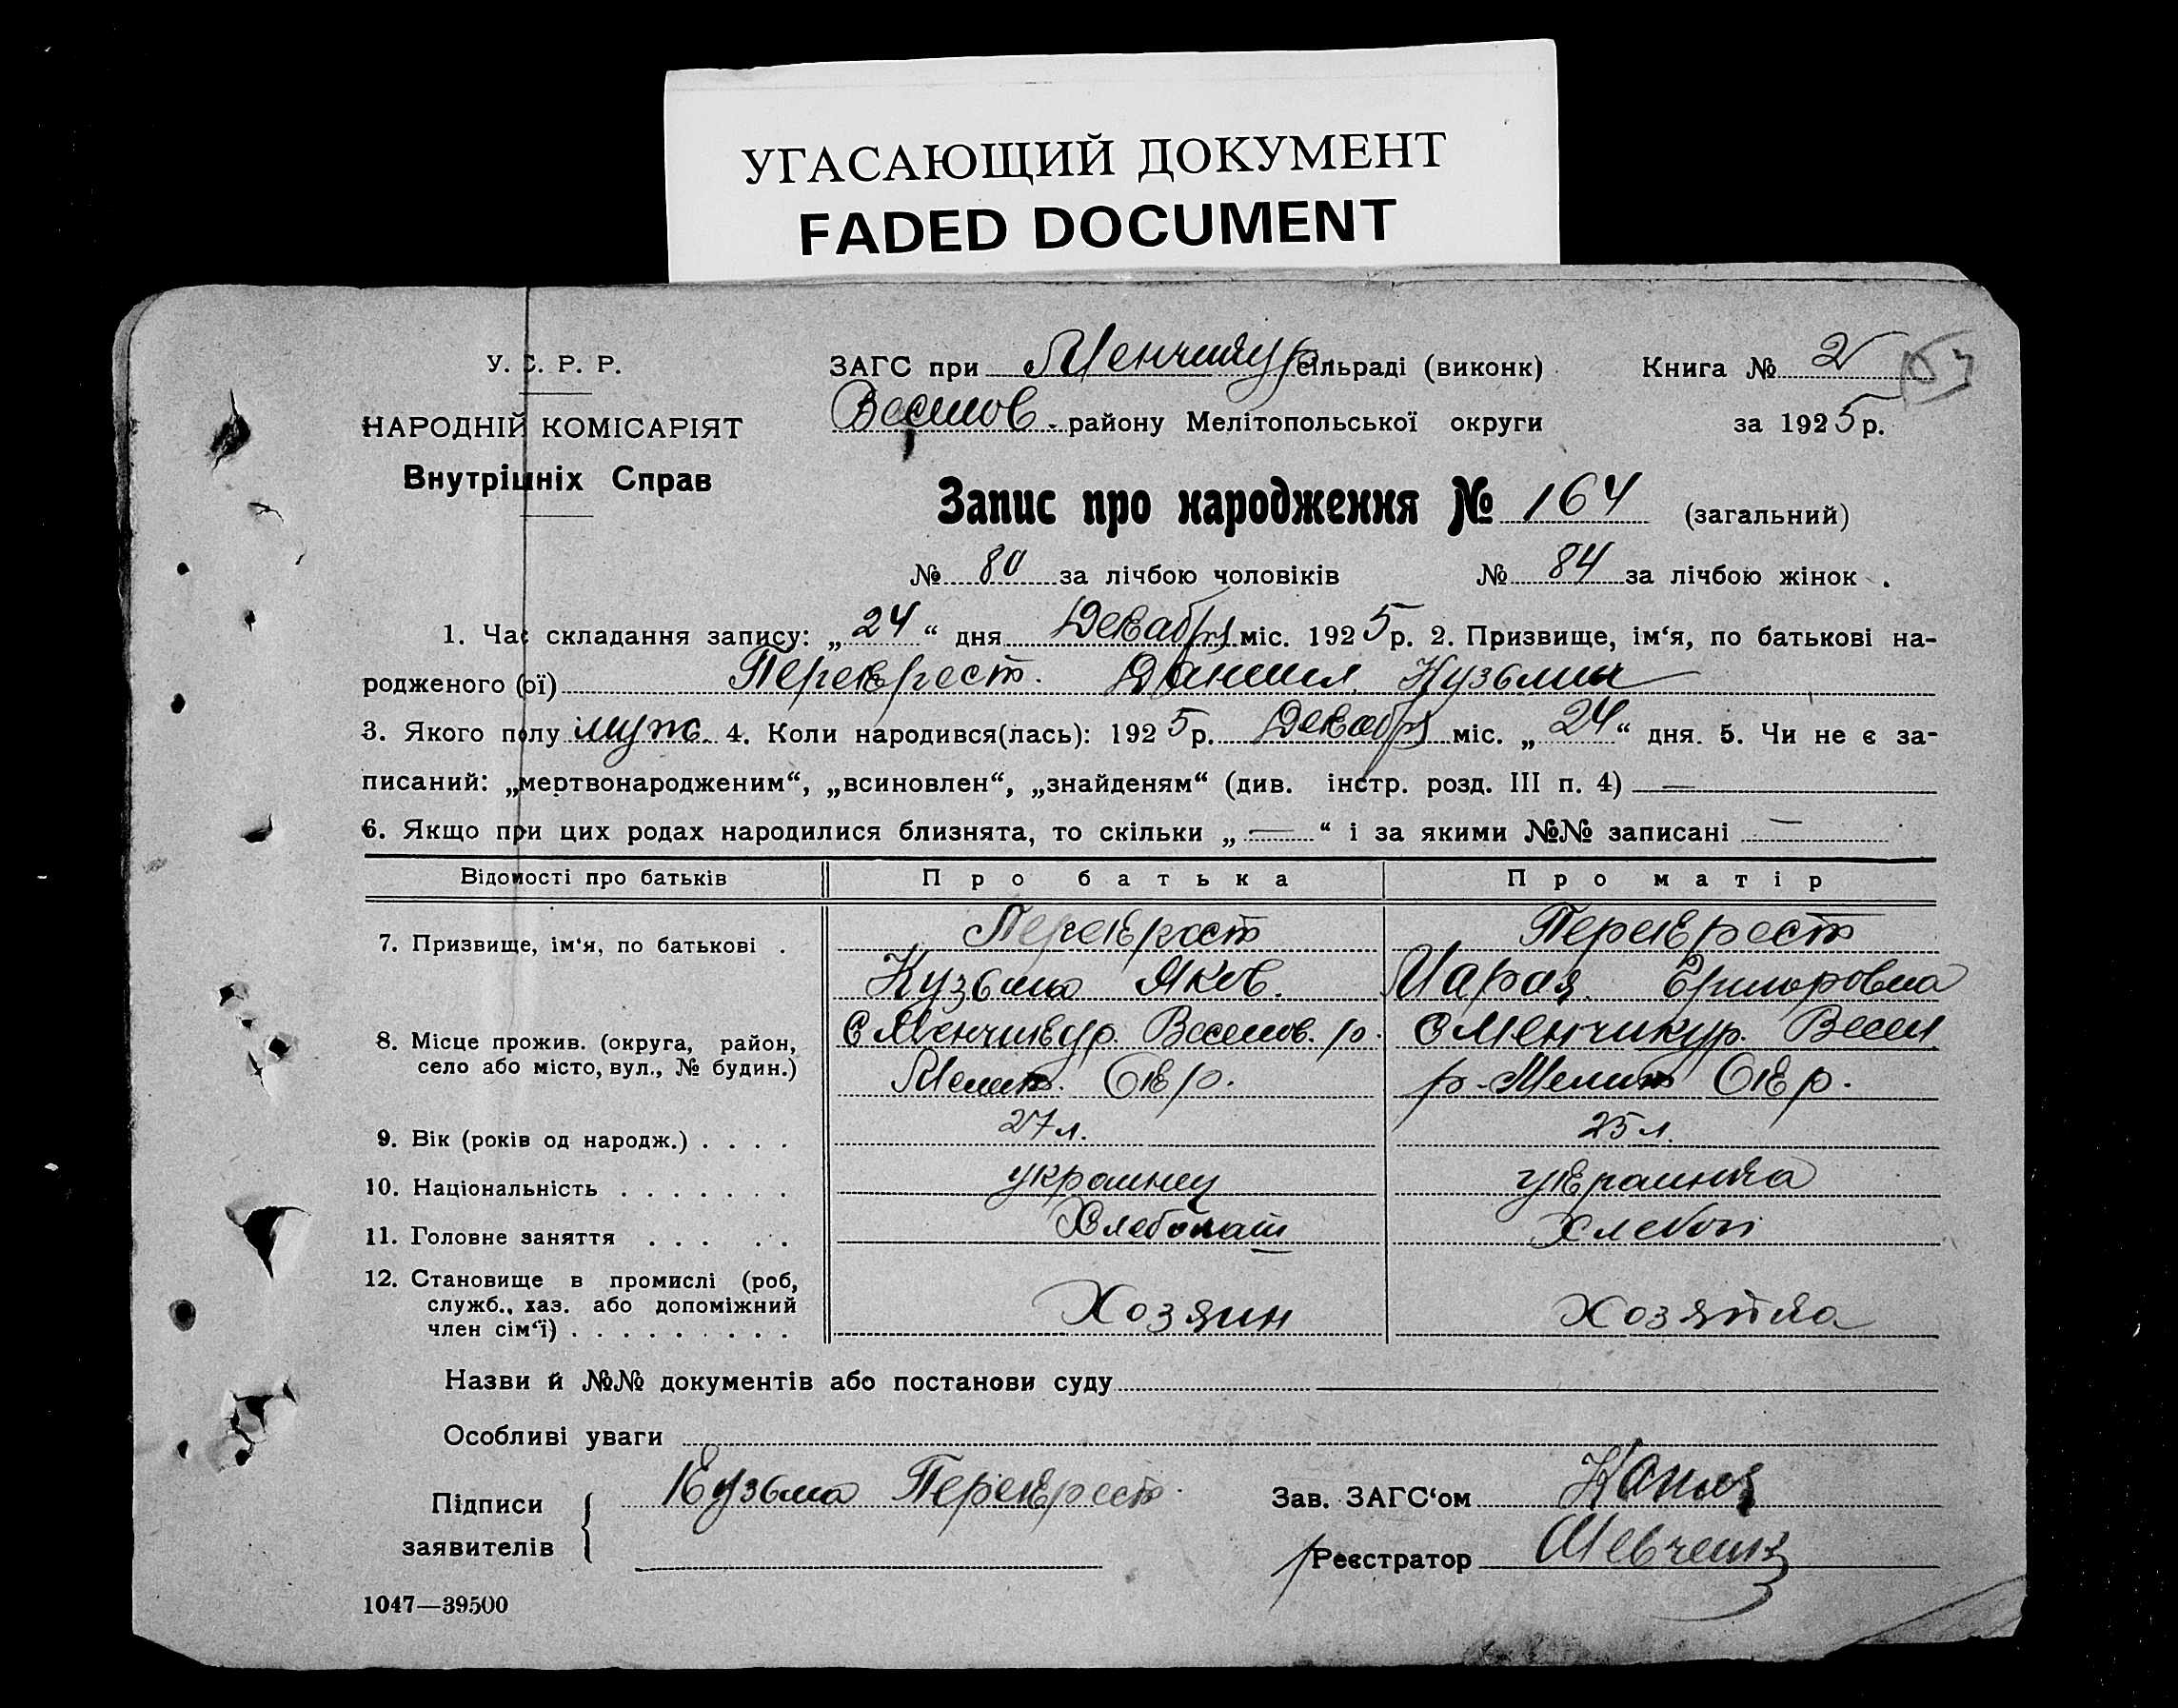 УГАСАЮЩИЙ ДОКУМЕНТ
FADED DOCUMENT
У. С. Р. Р.
НАРОДНІЙ КОМІСАРІЯТ
Внутрішніх Справ
ЗАГС при Менчикур сільраді (виконк)
Веселов - району Мелітопольської округи
Книга № 2
за 1925 р.
Запис про народження № 164 (загальний)
№ 80 за лічбою чоловіків № 84 за лічбою жінок .
1. Час складання запису: „24“ дня Декабря міс. 1925 р. 2. Призвище, ім‘я, по батькові на-
родженого (ої) Перекрест. Даниил Кузьмич
3. Якого полу муж. 4. Коли народився(лась): 1925 р. Декабря міс. „24“ дня. 5. Чи не є за-
писаний: „мертвонародженим“, „всиновлен“, „знайденям“ (див. інстр. розд. III п. 4) —
6. Якщо при цих родах народилися близнята, то скільки „—“ і за якими №№ записані —
Відомості про батьків Про батька Про матір
7. Призвище, ім‘я, по батькові . Перекрест Перекрест
Кузьма Яков. Мария
8. Місце прожив. (округа, район, с Менчикур. Веселов. р. с Менчикур. Весел
село або місто, вул., № будин.) Мелит. Окр. р. Мелит Окр.
9. Вік (років од народж.) . . . . 27 л. 25 л.
10. Національність . . . . . . . украинец украинка
11. Головне заняття . . . . . Хлебопаш Хлебоп
12. Становище в промислі (роб,
служб., хаз. або допоміжний Хозяин Хозяйка
член сім‘ї) . . . . . . . . .
Назви й №№ документів або постанови суду
Особливі уваги
Підписи Кузьма Перекрест Зав. ЗАГС‘ом
заявителів Реєстратор
1047—39500